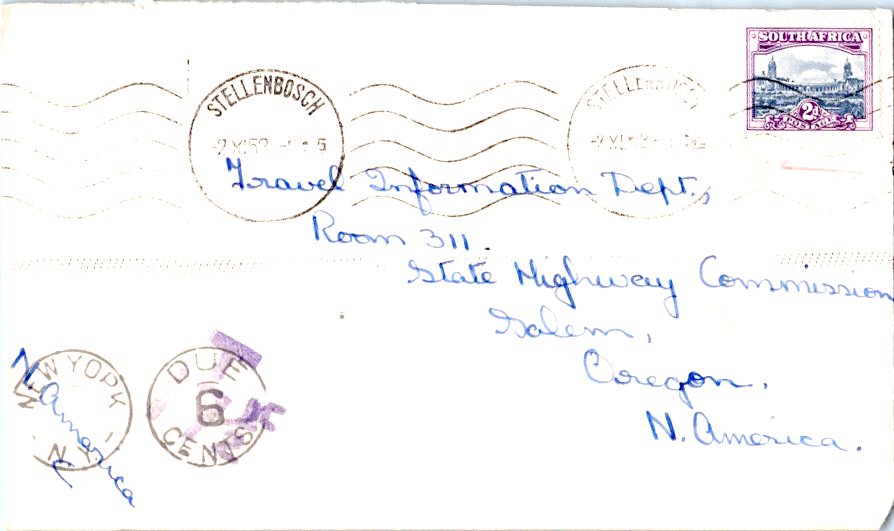 SOUTH AFRICA
2d
POSTAGE
STELLENBOSCH
STELLENBOSCH
Travel Information Dept.,
Room 311.
State Highway Commission
Salem,
Oregon.
N. America.
NEW YORK
N.Y.
N. America
DUE
6
CENTS
T